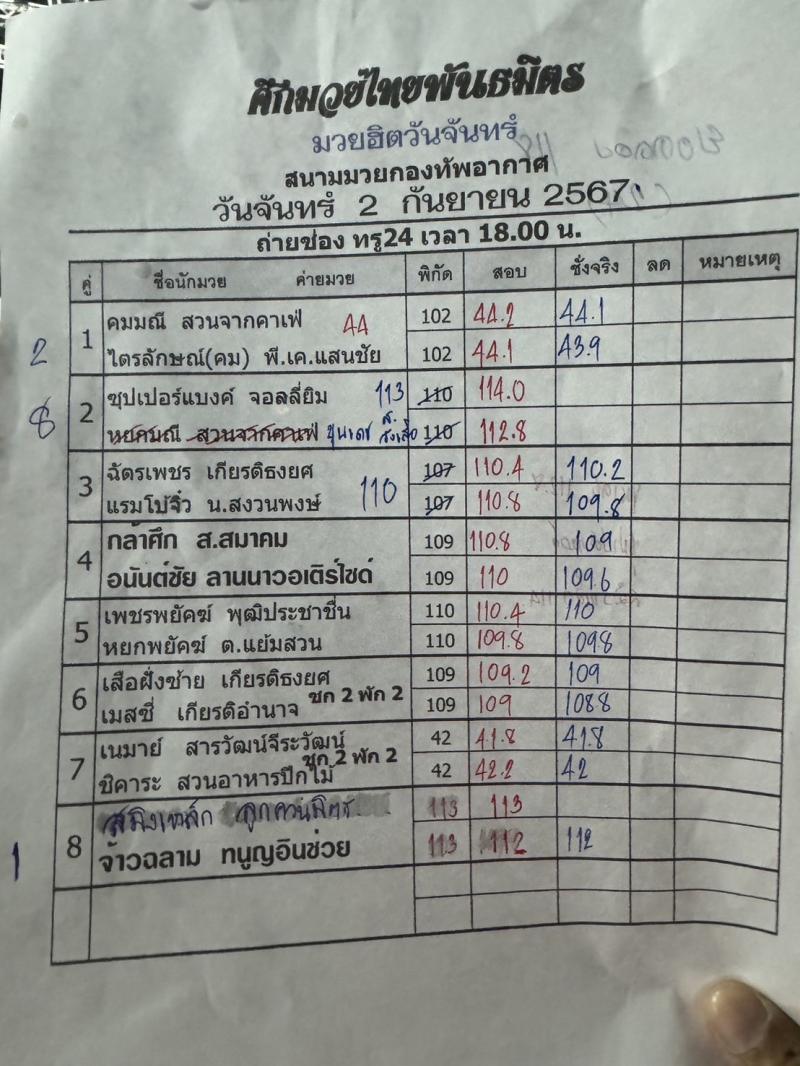 ศึกมวยไทยพันธมิตร
มวยฮิตวันจันทร์
สนามมวยกองทัพอากาศ
วันจันทร์ 2 กันยายน 2567
ถ่ายช่อง ทรู24 เวลา 18.00 น.
คู่ ชื่อนักมวย ค่ายมวย พิกัด สอบ ชั่งจริง ลด หมายเหตุ
2 1 คมมณี สวนจากคาเฟ่ 44 102 44.2 44.1
ไตรลักษณ์(คม) พี.เค.แสนชัย 102 44.1 43.9
8 2 ซุปเปอร์แบงค์ จอลลี่ยิม 113 110 114.0
หยคมณี สวนจากคาเฟ่ ขุนเดช ส. 110 112.8
3 ฉัตรเพชร เกียรติธงยศ 110 107 110.4 110.2
แรมโบ้จิ๋ว น.สงวนพงษ์ 107 110.8 109.8
4 กล้าศึก ส.สมาคม 109 110.8 109
อนันต์ชัย ลานนาวอเติร์ไซด์ 109 110 109.6
5 เพชรพยัคฆ์ พุฒิประชาชื่น 110 110.4 110
หยกพยัคฆ์ ต.แย้มสวน 110 109.8 109.8
6 เสือฝั่งซ้าย เกียรติธงยศ 109 109.2 109
เมสซี่ เกียรติอำนาจ ชก 2 พัก 2 109 109 108.8
7 เนมาย์ สารวัฒน์จีระวัฒน์ 42 41.8 41.8
ชิคาระ สวนอาหารปีกไม้ ชก 2 พัก 2 42 42.2 42
8 สมิงเหล็ก 113 113
1 จ้าวฉลาม ทนูญอินช่วย 113 112 112